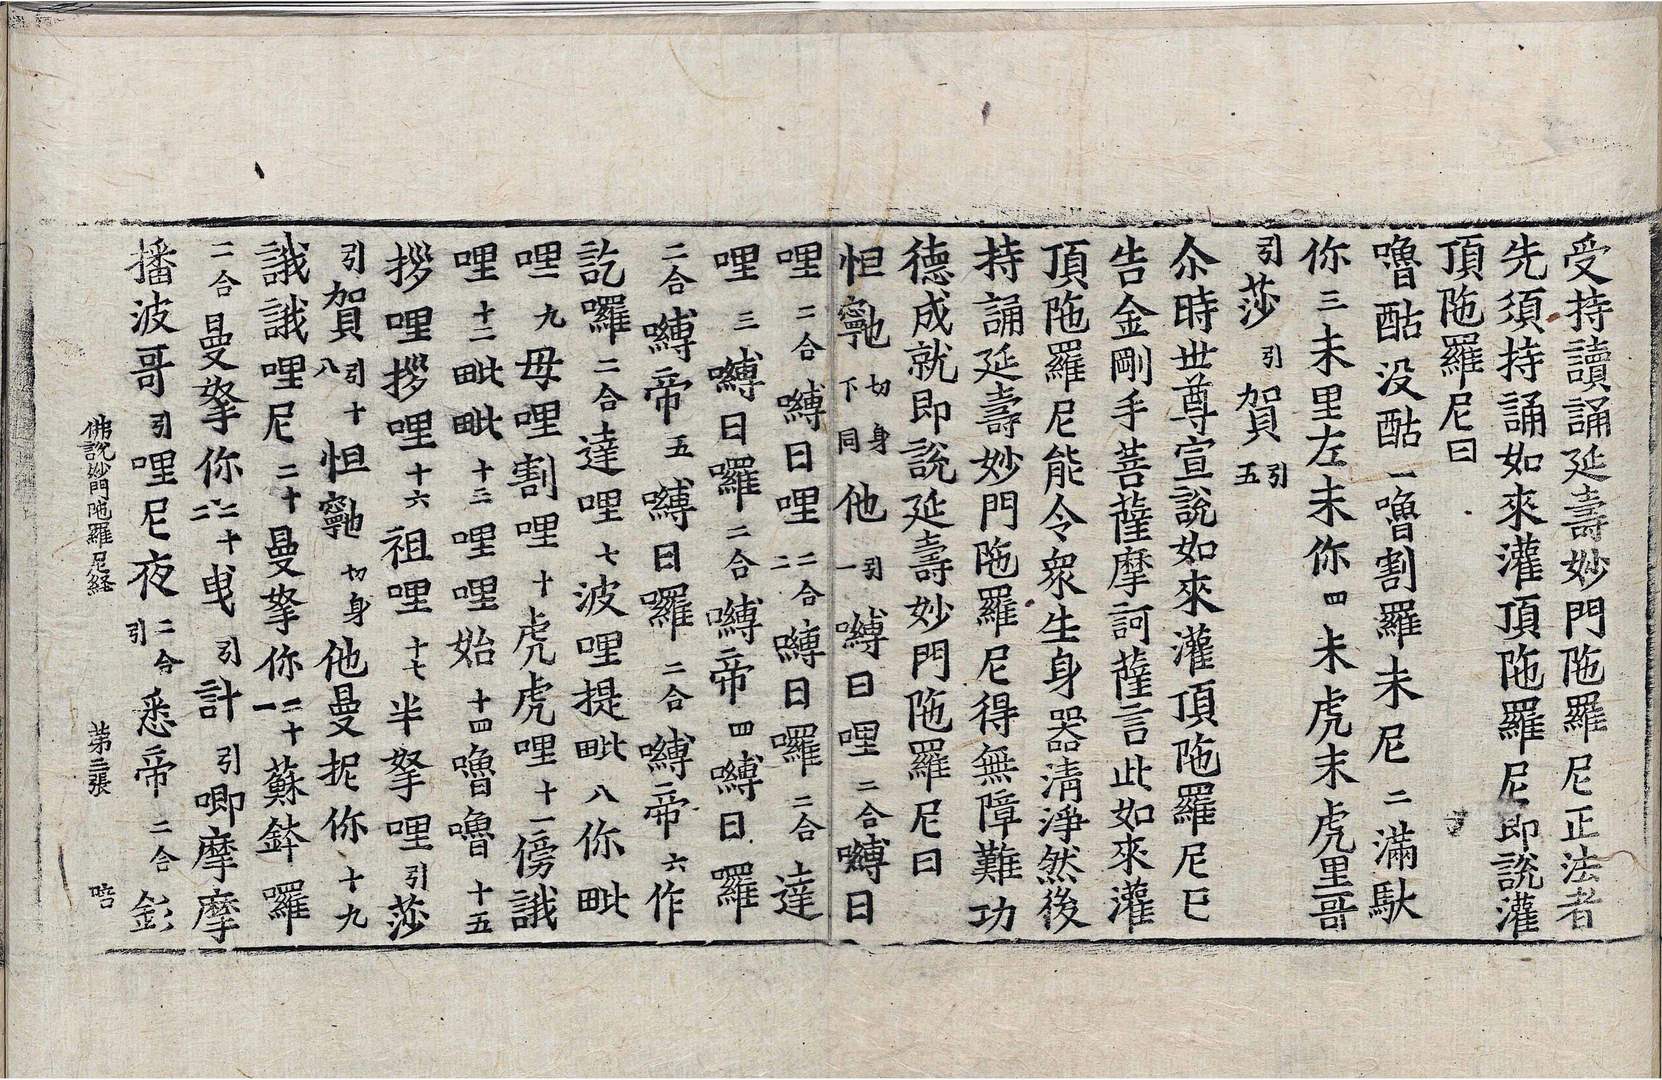 受持讀誦延壽妙門陁羅尼正法者
先須持誦如來灌頂陁羅尼即說灌
頂陁羅尼曰
嚕酤没酤一嚕割羅未尼二滿馱
你三未里左未你四未虎末虎里哥
引莎引賀引五
尒時世尊宣說如來灌頂陁羅尼已
告金剛手菩薩摩訶薩言此如來灌
頂陁羅尼能令衆生身器清淨然後
持誦延壽妙門陁羅尼得無障難功
德成就即說延壽妙門陁羅尼曰
怛切身下同他引一嚩日哩二合嚩日
哩二合嚩日哩二合二嚩日囉二合達
哩三嚩日囉二合嚩帝四嚩日囉
二合嚩帝五嚩日囉二合嚩帝六作
訖囉二合達哩七波哩提毗八你毗
哩九母哩割哩十虎虎哩十一傍誐
哩十二毗毗十三哩哩始十四嚕嚕十五
拶哩拶哩十六祖哩十七半拏哩引莎
引賀引十八怛切身他曼抳你十九
誐誐哩尼二十曼拏你二十一蘇鉢囉
二合曼拏你二十二曵引計引唧摩摩
播波哥引哩尼夜二合引悉帝二合彭
佛說妙門陁羅尼経 苐三張 喑